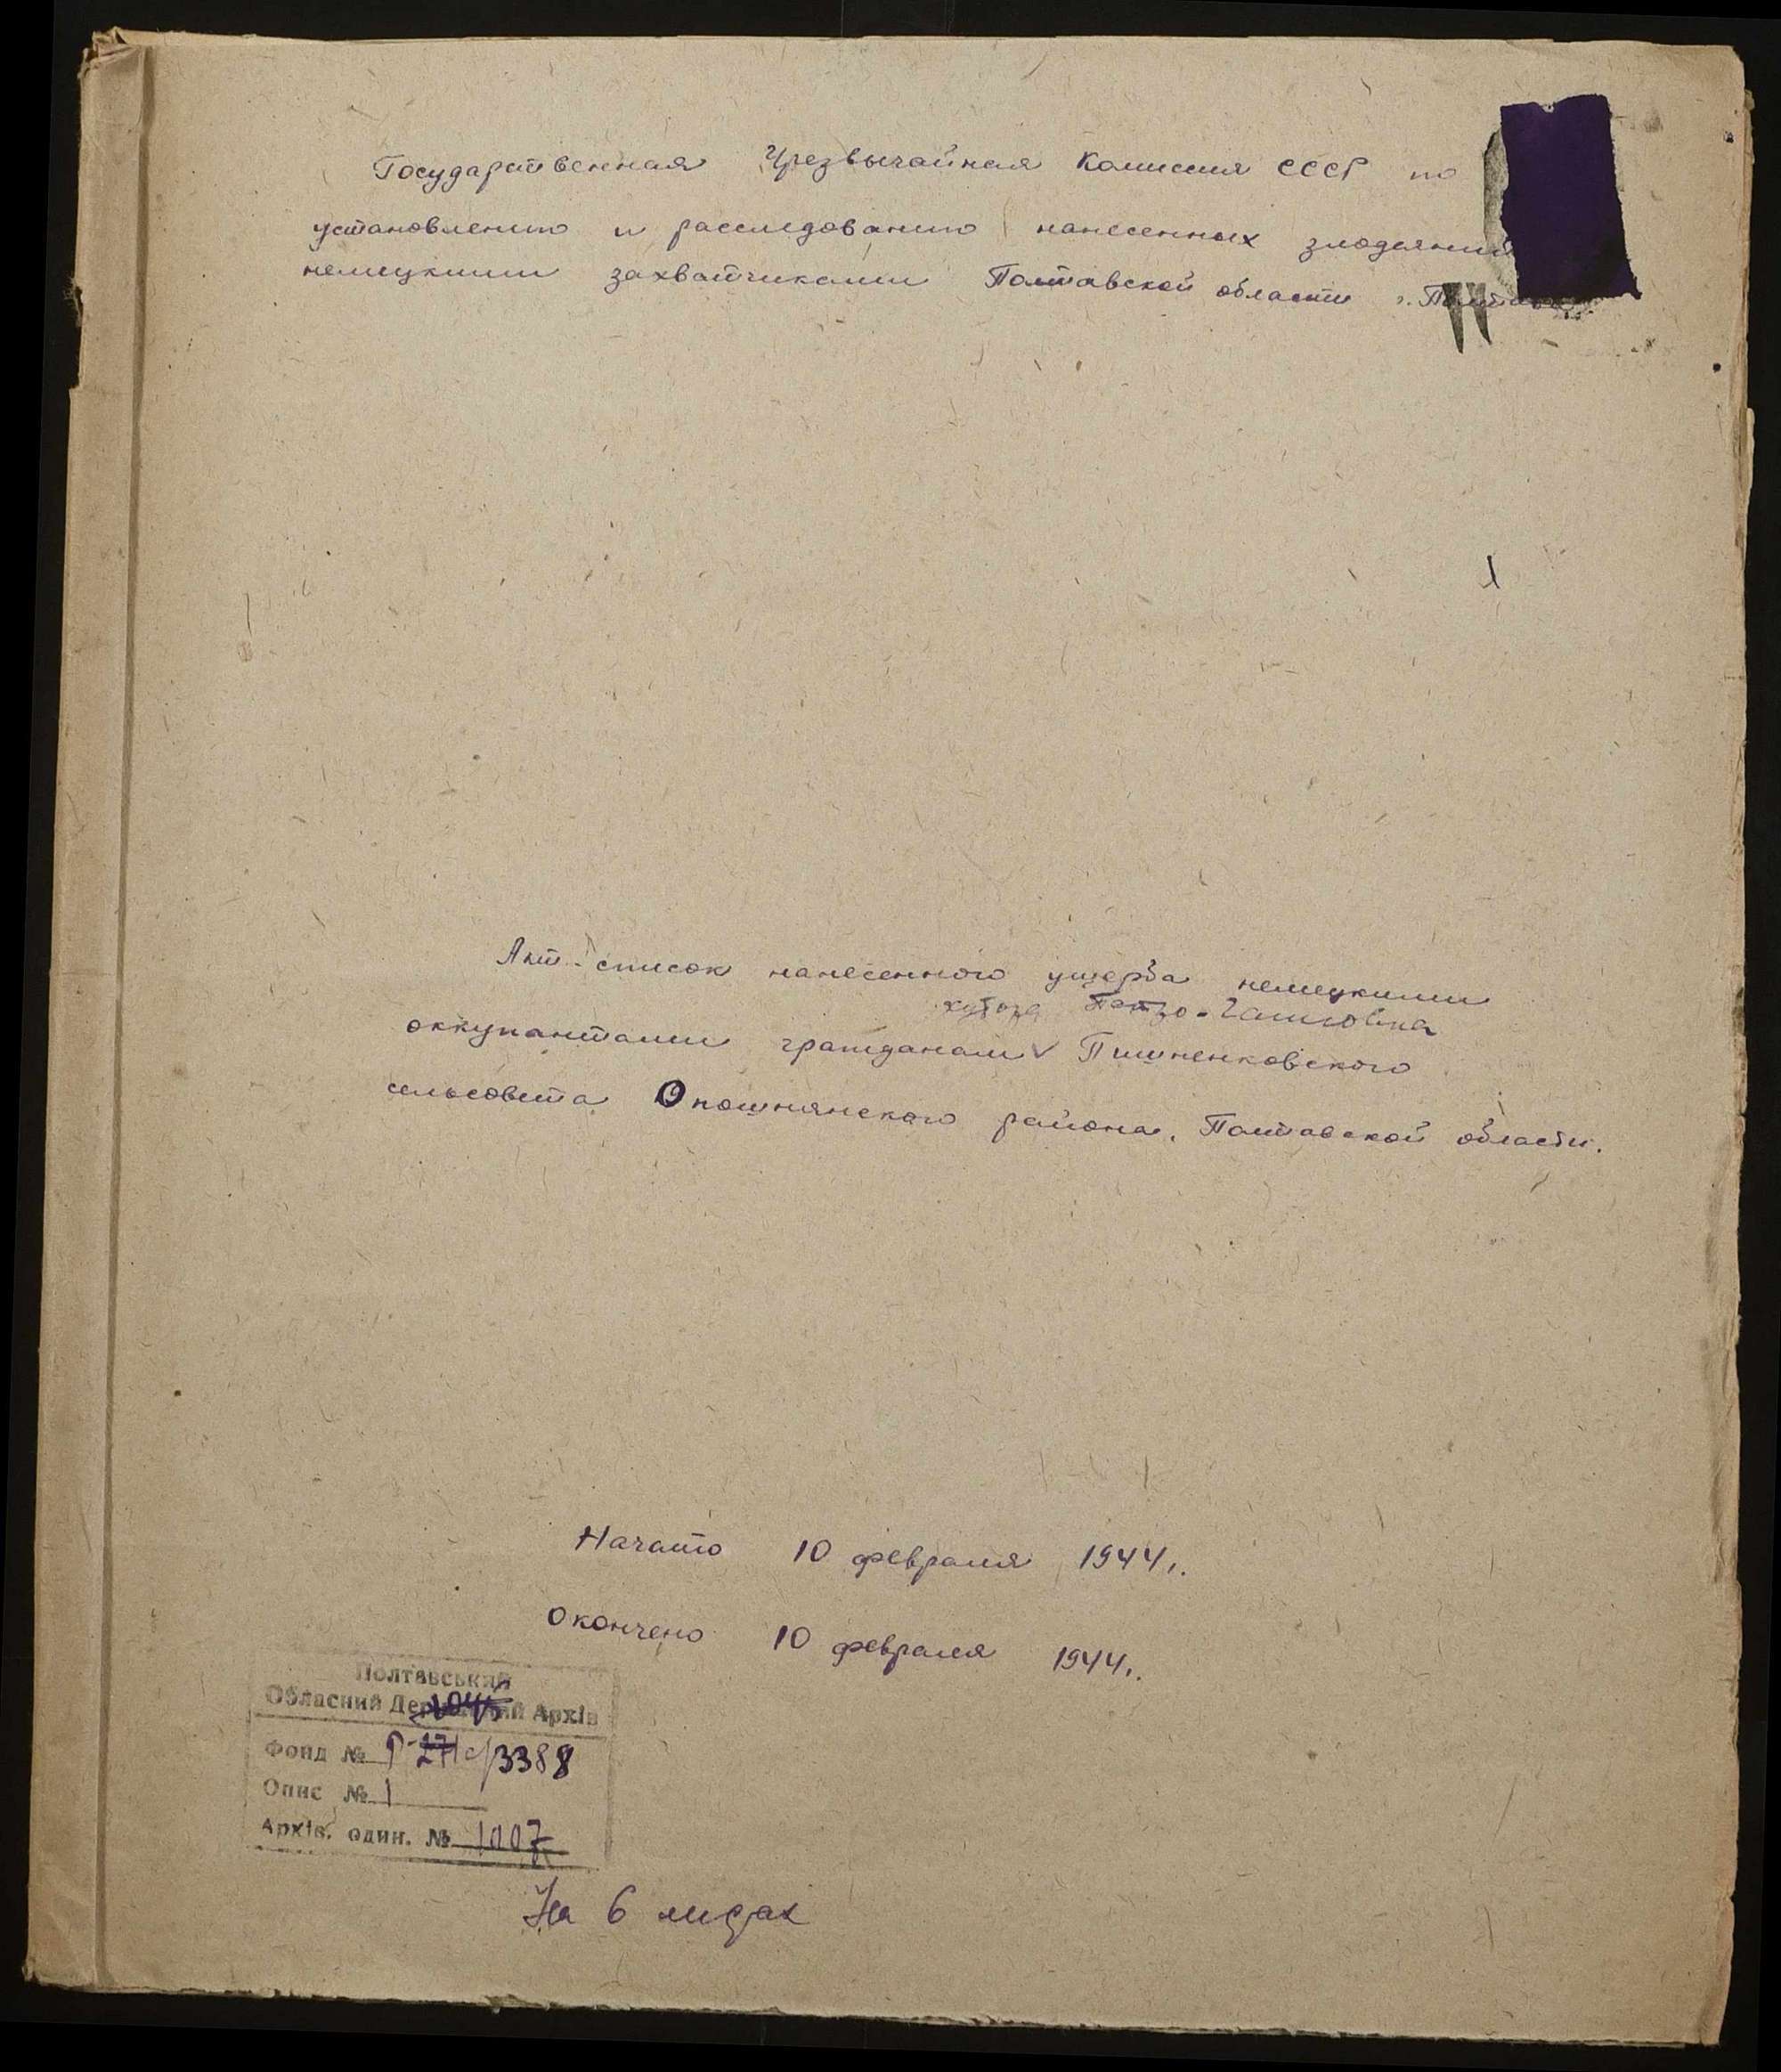 Государственная Чрезвычайная Комиссия СССР по
установлению и расследованию нанесенных злодеяний
немецкими захватчиками Полтавской области г. Полтава
Акт-список нанесенного ущерба немецкими
хутора
оккупантами гражданам V Пишненковского
сельсовета Опошнянского района, Полтавской области.
Начато 10 февраля 1944г.
Окончено 10 февраля 1944г.
Полтавський
Обласний Державний Архів
Фонд № Р- 3388
Опис № 1
Архів. один. № 1007
На 6 листах